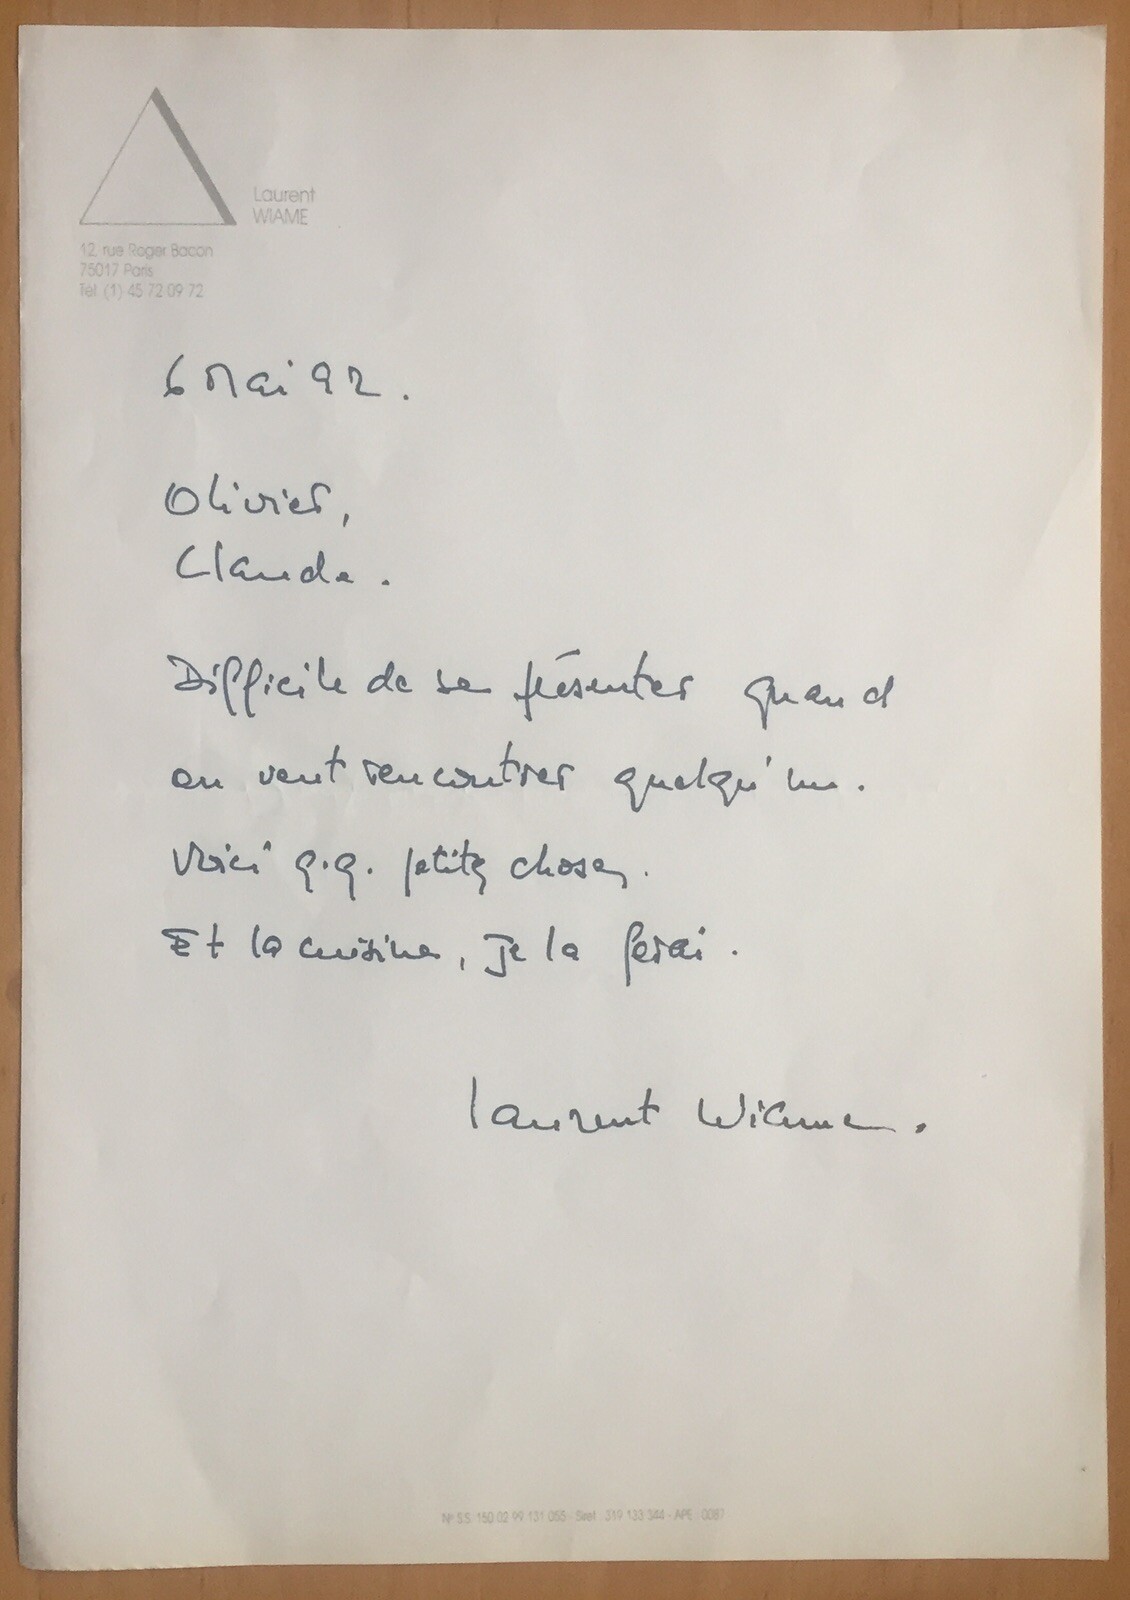 Laurent
WIAME
12, rue Roger Bacon
75017 Paris
Tél. (1) 45 72 09 72
6 Mai 92.
Olivier,
Claude.
Difficile de se présenter quand
on veut rencontrer quelqu'un.
Voici q.q. petites choses.
Et la cuisine, je la ferai.
Laurent Wiame.
N° S.S. 150 02 99 131 055 - Siret : 319 133 344 - APE : 0087